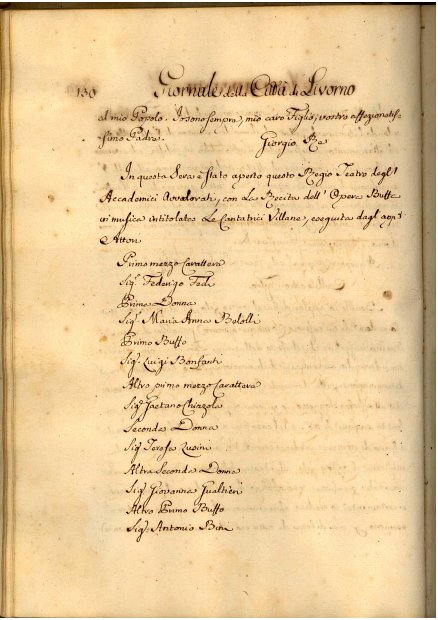 130 Giornale della Città di Livorno
al mio Popolo. Io sono sempre, mio caro Figlio, vostro affezionatis=
simo Padre.
Giorgio Re
In questa Sera è stato aperto questo Regio Teatro degl'
Accademici Avvalorati, con La Recita dell' Opera Buffa
in musica intitolata Le Cantatrici Villane, eseguita dagl'app.i
Attori
Primo mezzo Carattere
Sig.r Federigo Fedi
Prima Donna
Sig.ra Maria Anna
Primo Buffo
Sig.r Luigi Bonfanti
Altro primo mezzo Carattere
Sig.r Gaetano Chizzola
Seconda Donna
Sig.ra Teresa
Altra Seconda Donna
Sig.ra Giovanna Gualtieri
Altro Primo Buffo
Sig.r Antonio Bini